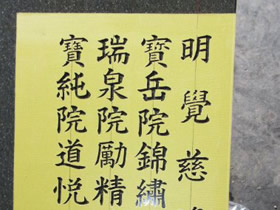 明覺慈
寶岳院錦繡
瑞泉院勵精
寶純院道悦